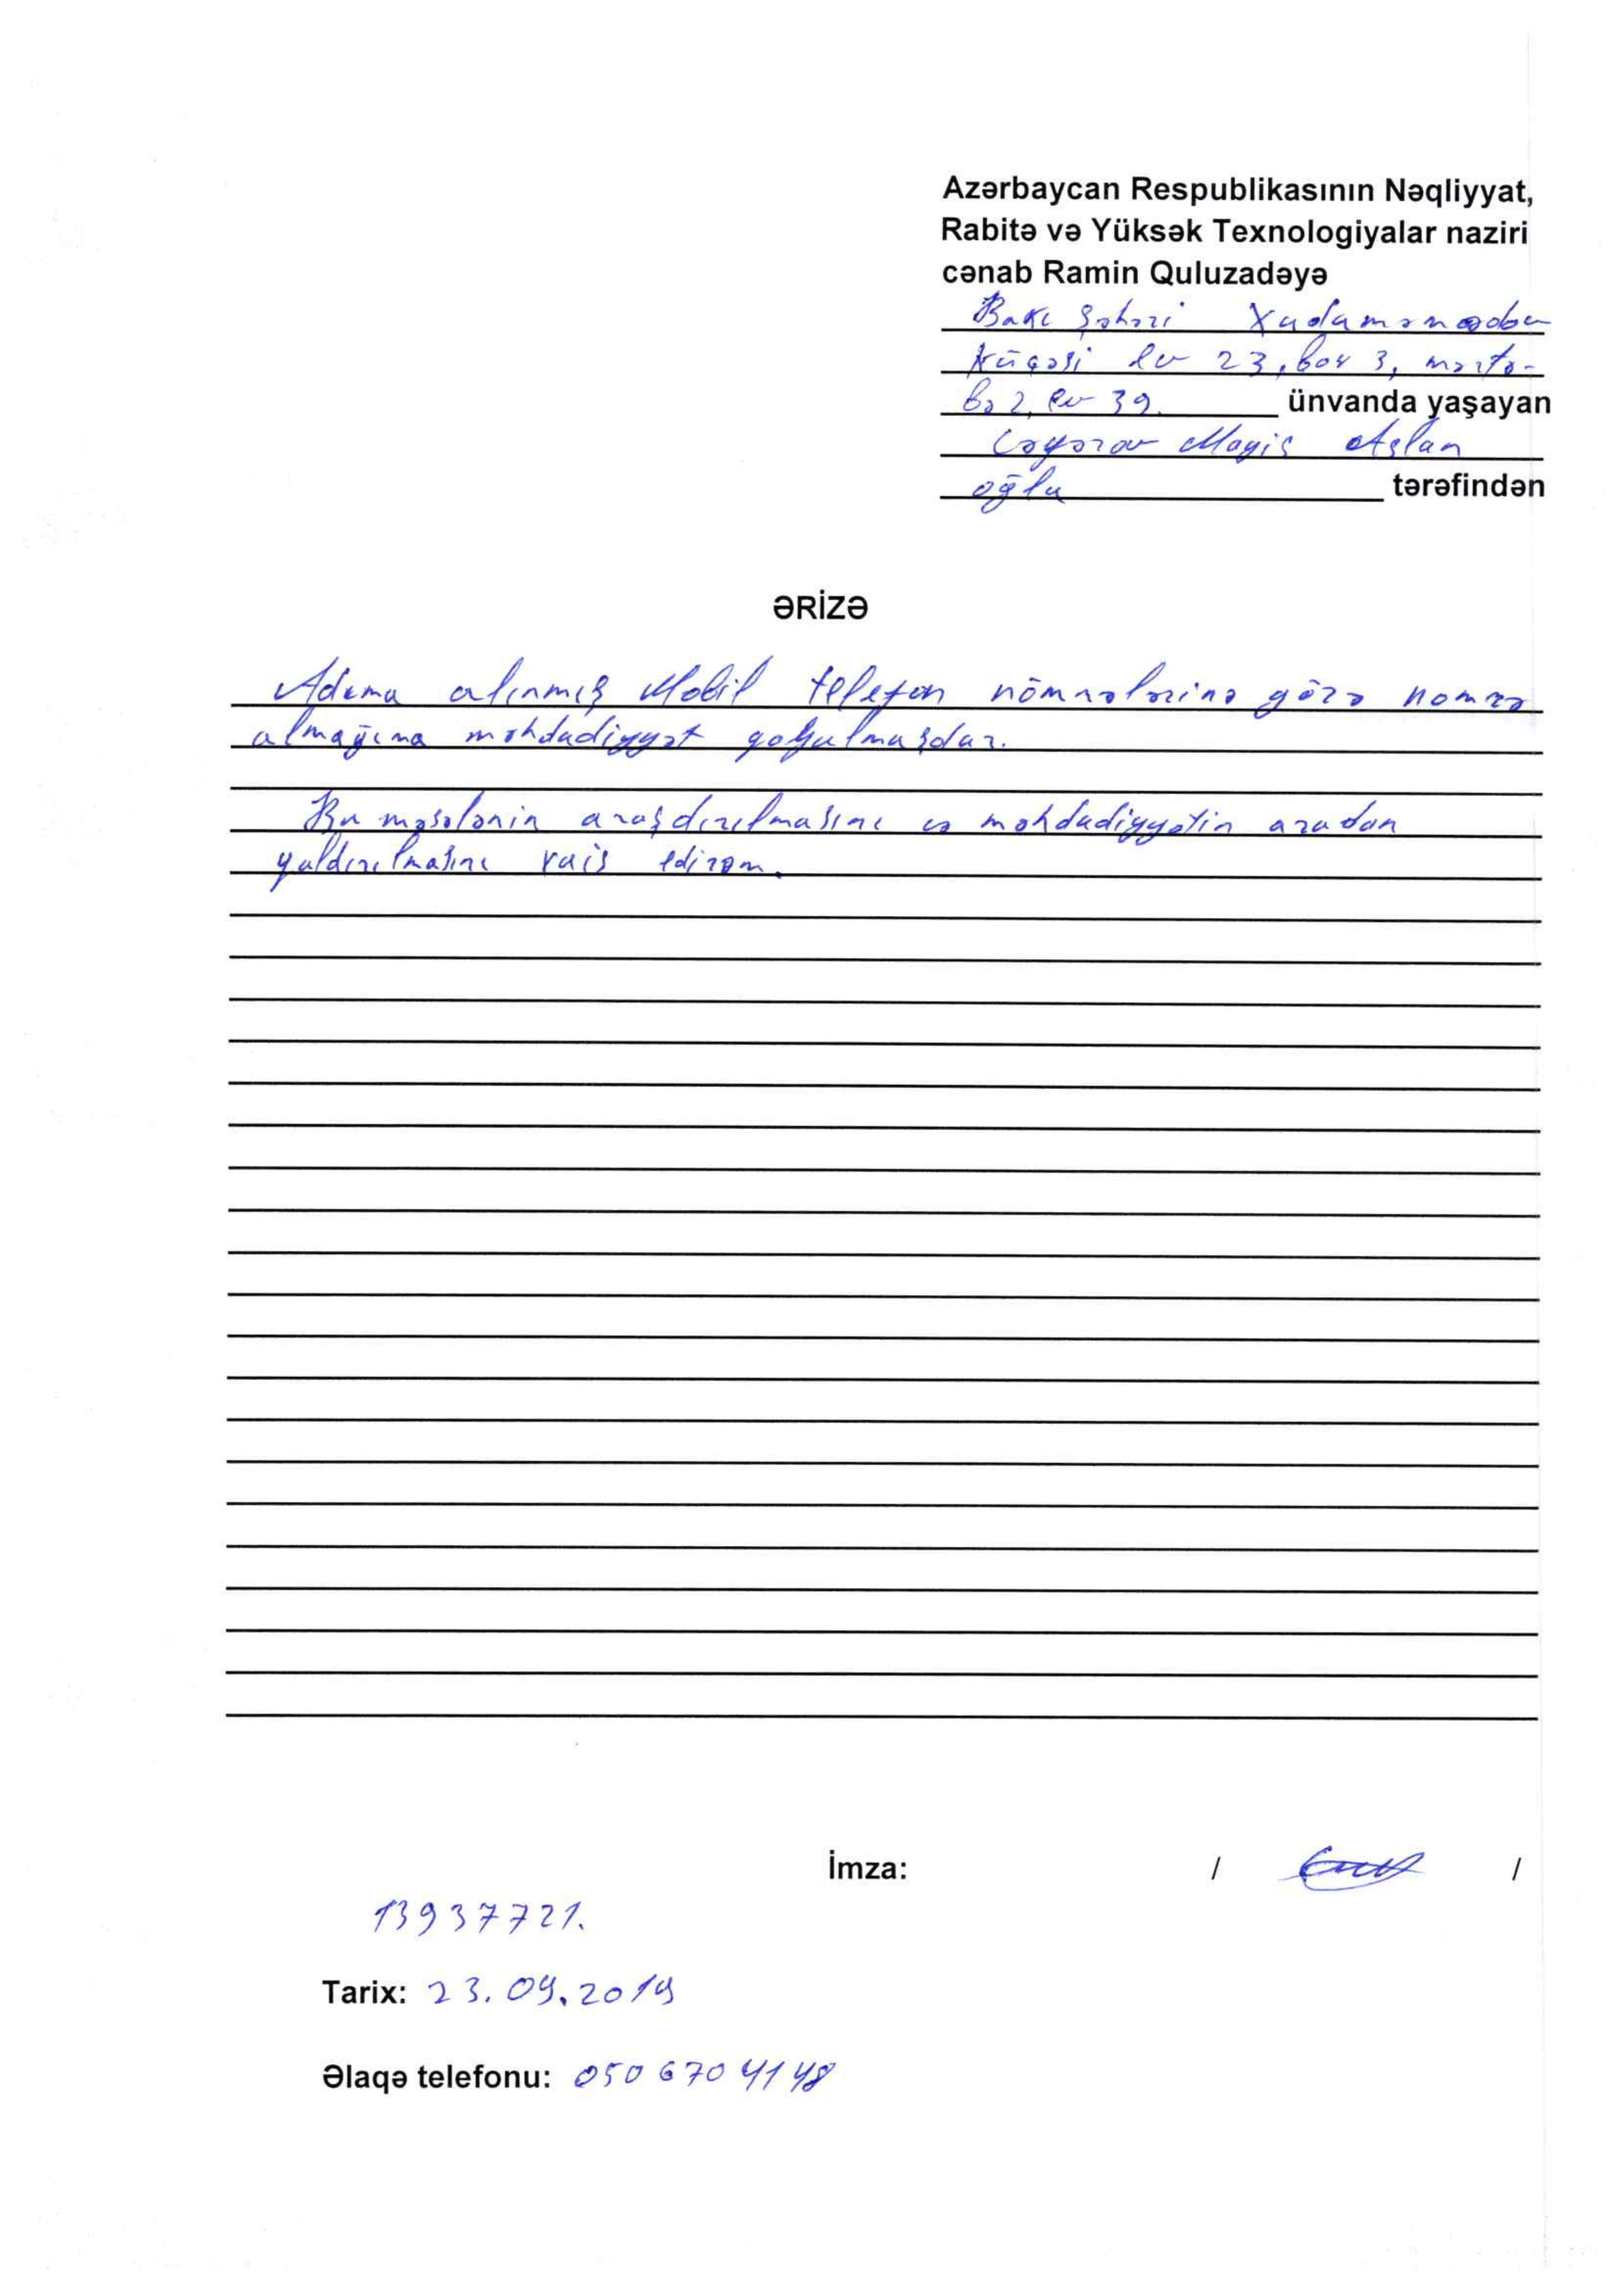 Azərbaycan Respublikasının Nəqliyyat,
Rabitə və Yüksək Texnologiyalar naziri
cənab Ramin Quluzadəyə
Bakı şəhəri Xudaməmədov
küçəsi ev 23, bov 3, mərtə-
bə 2, ev 39. ünvanda yaşayan
Cəfərov Aslan
oğlu tərəfindən
ƏRİZƏ
Adıma alınmış Mobil telefon nömrələrinə görə nomrə
almağıma məhdudiyyət qoyulmuşdur.
Bu məsələnin araşdırılmasını və məhdudiyyətin aradan
qaldırılmasını xais edirəm.
İmza: / /
13937721.
Tarix: 23.09.2019
Əlaqə telefonu: 050 670 41 48